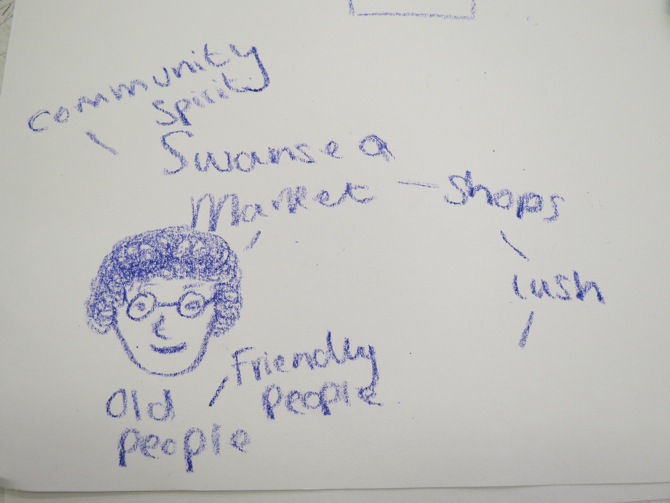 community
spirit
Swansea
Market – shops
Lush
Friendly
people
Old
people